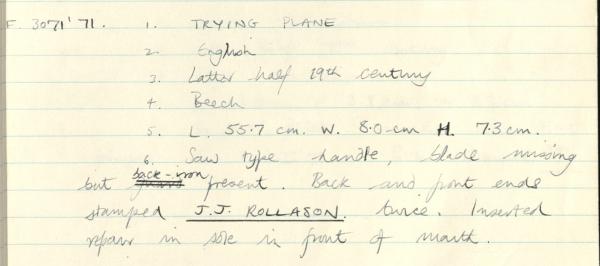 F. 3071'71. 1. TRYING PLANE
2. English
3. Latter half 19th century
4. Beech
5. L. 55.7 cm. W. 8.0 cm H. 7.3 cm.
6. Saw type handle, blade missing
but back-iron present. Back and front ends
stamped J.J. ROLLASON. twice. Inserted
repair in sole in front of mouth.